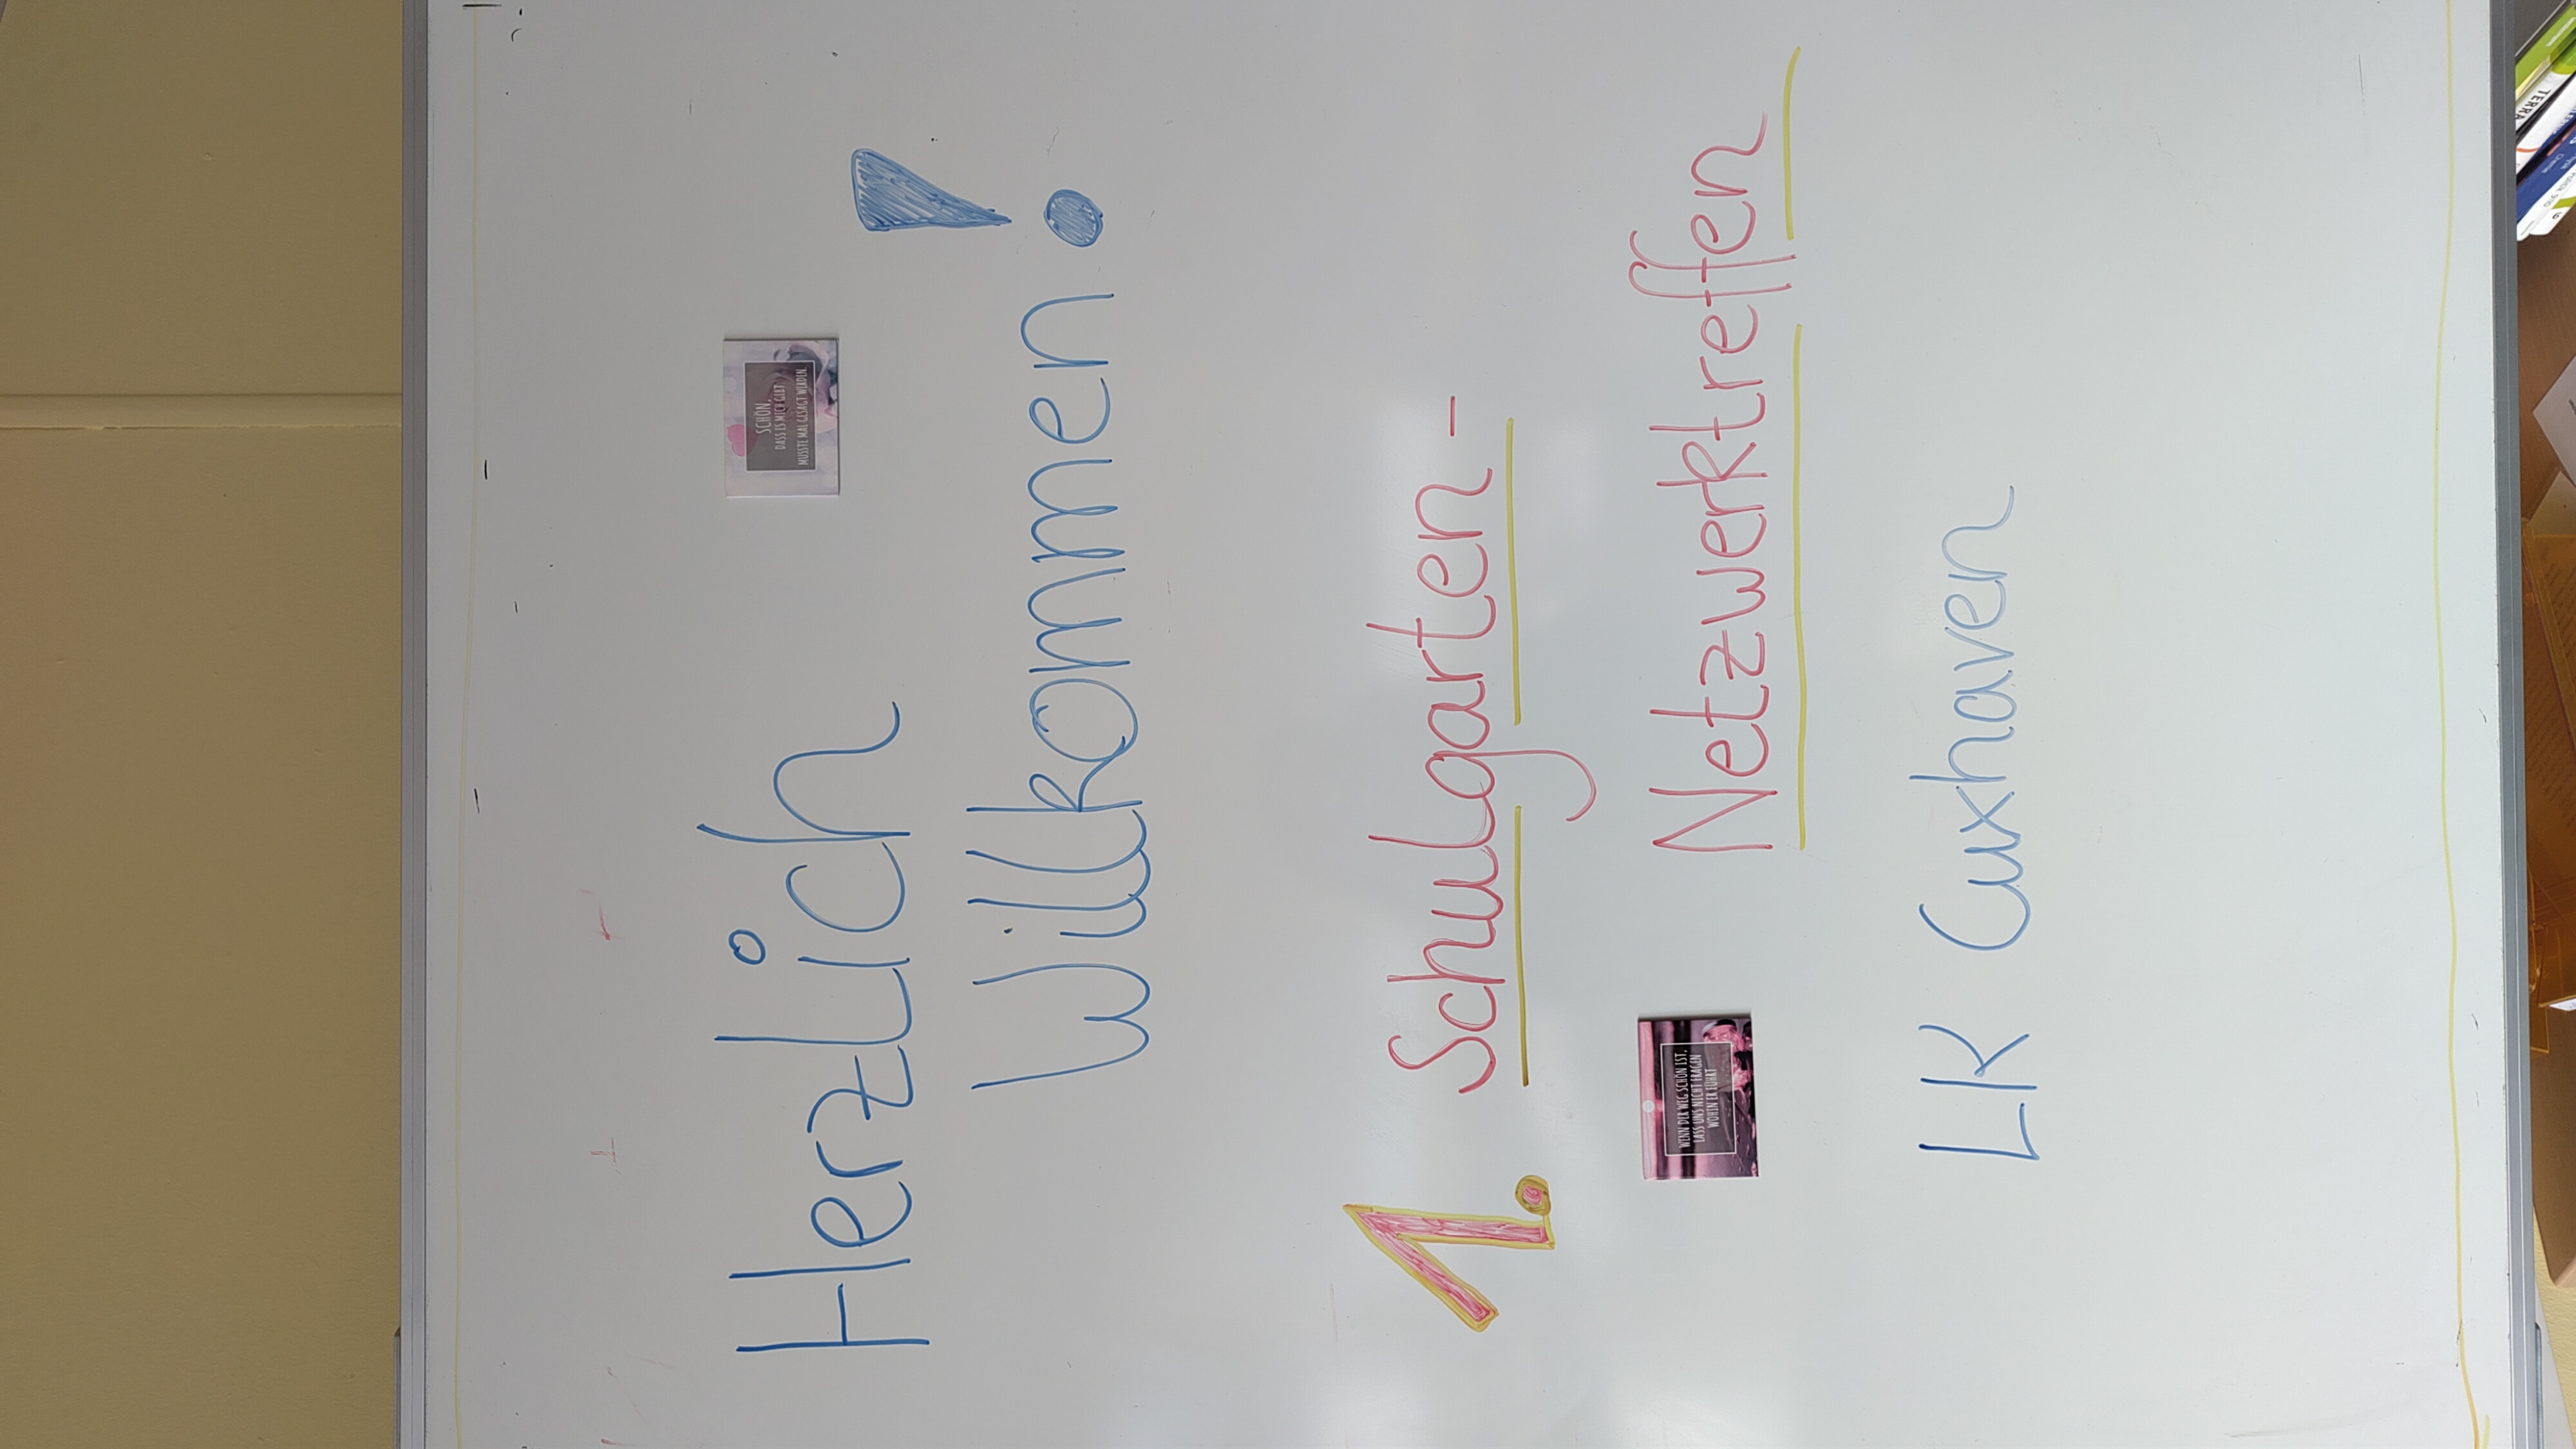 Herzlich
Willkommen!
SCHÖN,
DASS ES MICH GIBT.
MUSSTE MAL GESAGT WERDEN.
1. Schulgarten-
Netzwerktreffen
WENN DER WEG SCHÖN IST,
LASS UNS NICHT FRAGEN
WOHIN ER FÜHRT
LK Cuxhaven
TERRA